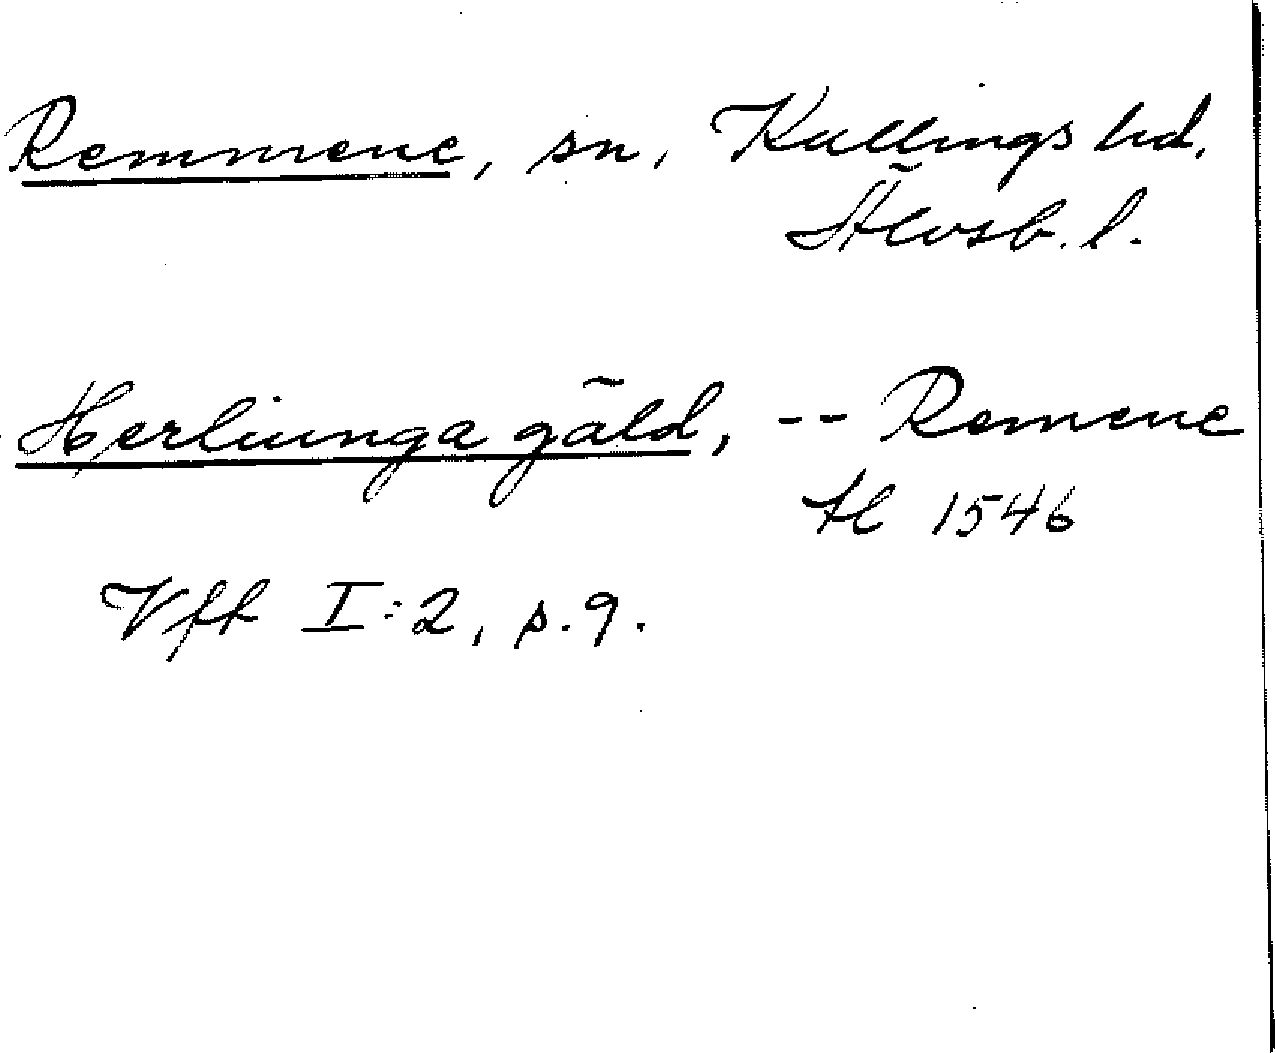 Remmene, sn, Kullings hd.
Älvsb. l.
Herliunga gäld, -- Remene
Äl 1546
Vff I:2, s. 9.